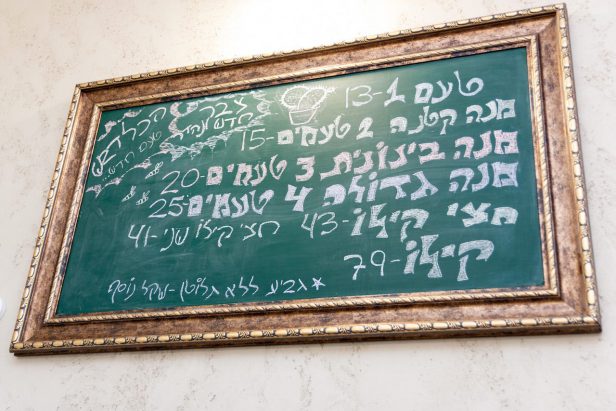 טעם 1-13
מנה קטנה 2 טעמים-15
מנה בינונית 3 טעמים-20
מנה גדולה 4 טעמים-25
חצי קילו-43 חצי קילו שני-41
קילו-79
*גביע ללא גלוטן-שקל נוסף
טעם חדש